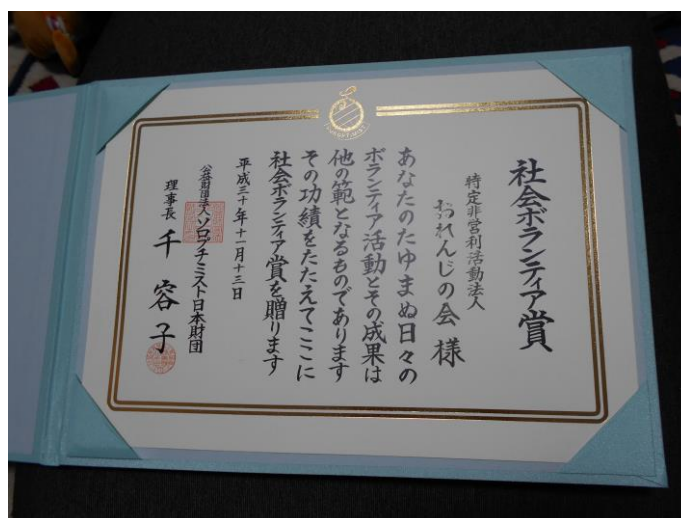 社会ボランティア賞
特定非営利活動法人
おれんじの会 様
あなたのたゆまぬ日々の
ボランティア活動とその成果は
他の範となるものであります
その功績をたたえてここに
社会ボランティア賞を贈ります
平成三十年十一月十三日
公益財団法人ソロプチミスト日本財団
理事長 千 容子